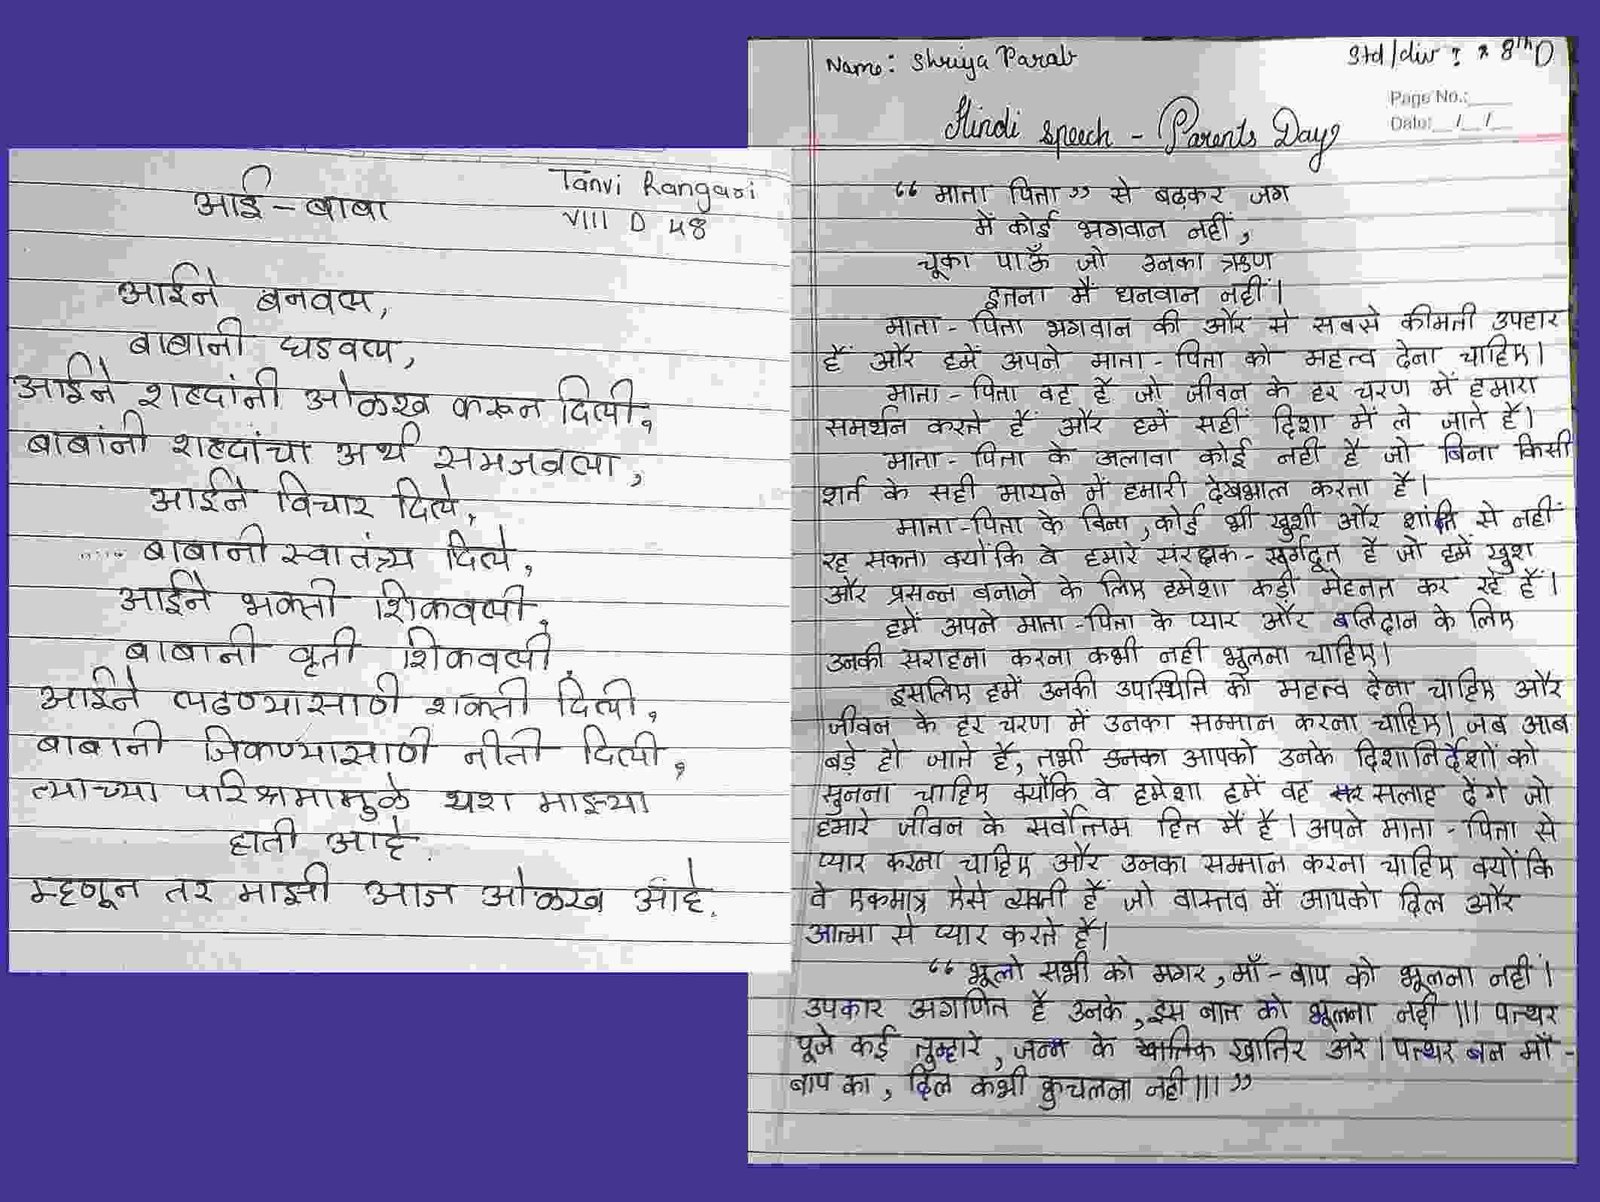 Tanvi Rangari
VIII D 48
आई - बाबा
आईने बनवल,
बाबानी घडवल,
आईने शब्दांनी ओळख करून दिली,
बाबांनी शब्दांचा अर्थ समजवला,
आईने विचार दिले,
..... बाबानी स्वातंत्र्य दिले,
आईने भक्ती शिकवली,
बाबानी वृत्ती शिकवली,
आईने लढण्यासाठी शक्ती दिली,
बाबानी जिंकण्यासाठी नीती दिली,
त्याच्या परिश्रमामुळे यश माझ्या
हाती आहे.
म्हणून तर माझी आज ओळख आहे.
Name: Shriya Parab
Std/div : 8th D
Page No.:
Date: / /
Hindi speech - Parents Day
“ माता पिता ” से बढ़कर जग
में कोई भगवान नहीं,
चूका पाऊँ जो उनका ऋण
इतना मैं धनवान नहीं।
माता - पिता भगवान की और से सबसे कीमती उपहार
हैं और हमें अपने माता - पिता को महत्व देना चाहिए।
माता - पिता वह है जो जीवन के हर चरण में हमारा
समर्थन करते हैं और हमें सहीं दिशा में ले जाते है।
माता - पिता के अलावा कोई नही है जो बिना किसी
शर्त के सही मायने में हमारी देखभाल करता है।
माता-पिता के बिना, कोई भी खुशी और शांति से नहीं
रह सकता क्योंकि वे हमारे संरक्षक - स्वर्गदूत है जो हमें खुश
और प्रसन्न बनाने के लिए हमेशा कड़ी मेहनत कर रहे हैं।
हमें अपने माता-पिता के प्यार और बलिदान के लिए
उनकी सराहना करना कभी नही भूलना चाहिए।
इसलिए हमें उनकी उपस्थिति को महत्व देना चाहिए और
जीवन के हर चरण में उनका सम्मान करना चाहिए। जब आब
बड़े हो जाते है, तभी उनका आपको उनके दिशानिर्देशों को
सुनना चाहिए क्योंकि वे हमेशा हमें वह सलाह देंगे जो
हमारे जीवन के सर्वोत्तम हित में है। अपने माता - पिता से
प्यार करना चाहिए और उनका सम्मान करना चाहिए क्योंकि
वे एकमात्र ऐसे व्यक्ती हैं जो वास्तव में आपको दिल और
आत्मा से प्यार करते है।
“ भूलो सभी को मगर, माँ - बाप को भूलना नहीं।
उपकार अगणित है उनके, इस बात को भूलना नही ||| पत्थर
पूजे कई तुम्हारे, जन्म के खातिर अरे। पत्थर बन माँ -
बाप का, दिल कभी कुचलना नही ||| ”